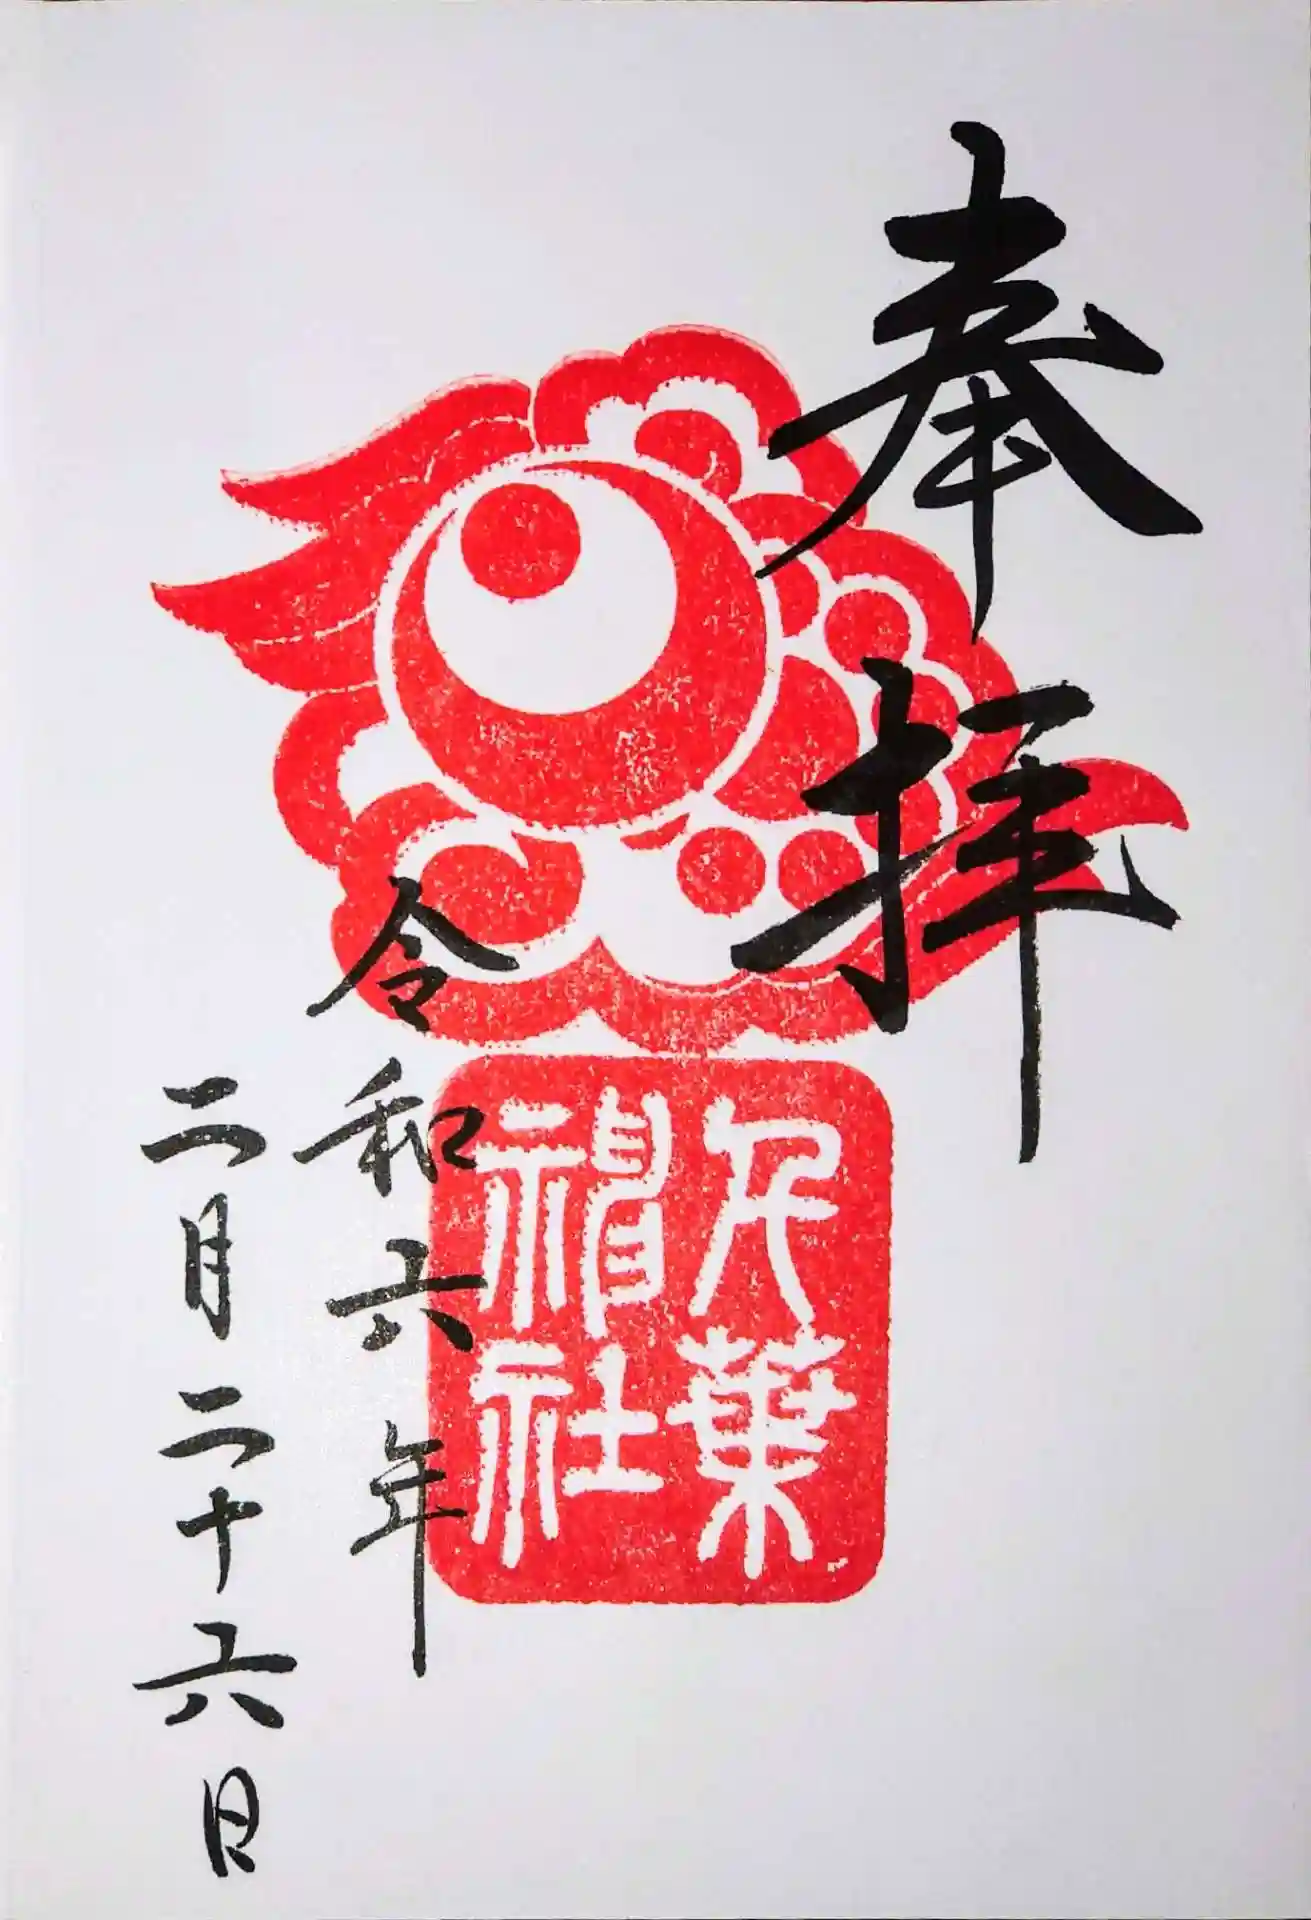 奉拝
千葉
神社
令和六年
二月二十六日